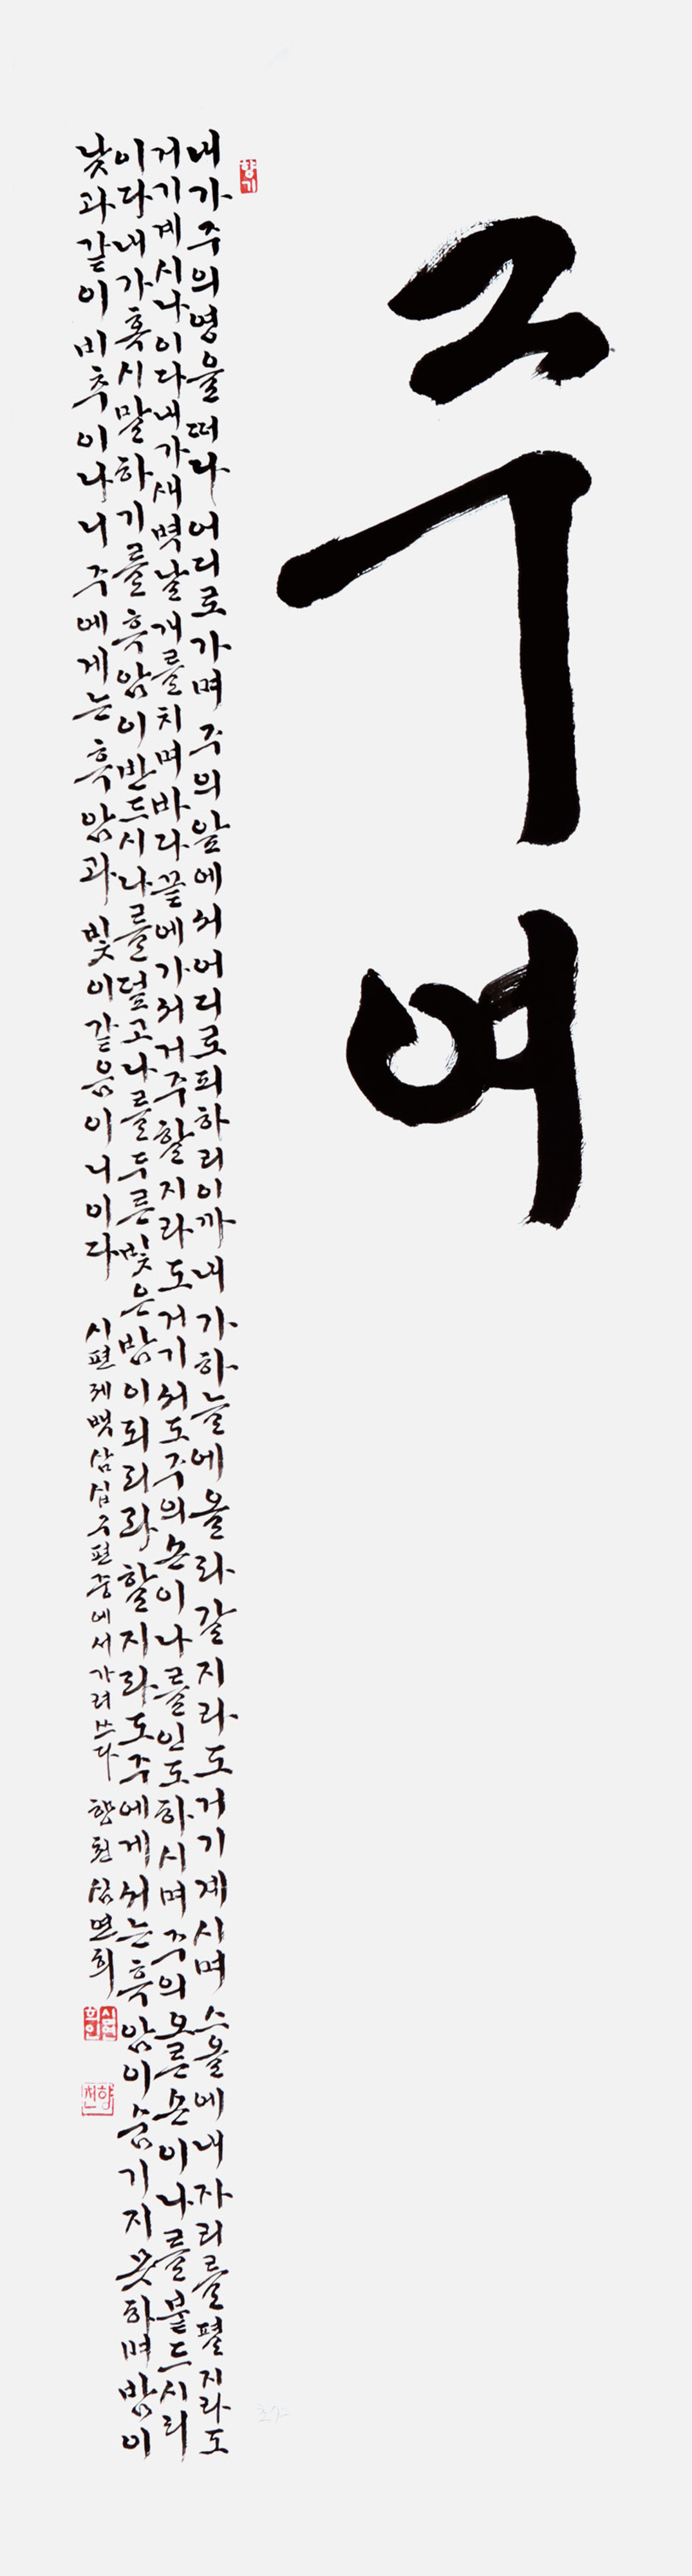 주여
향기
내가주의영을떠나어디로가며주의앞에서어디로피하리이까내가하늘에올라갈지라도거기계시며스올에내자리를펼지라도
거기계시나이다내가새벽날개를치며바다끝에가서거주할지라도거기서도주의손이나를인도하시며주의오른손이나를붙드시리
이다내가혹시말하기를흑암이반드시나를덮고나를두른빛은밤이되리라할지라도주에게서는흑암이숨기지못하며밤이
낮과같이비추이나니주에게는흑암과빛이같음이니이다 시편제백삼십구편중에서가려쓰다 향천심면희